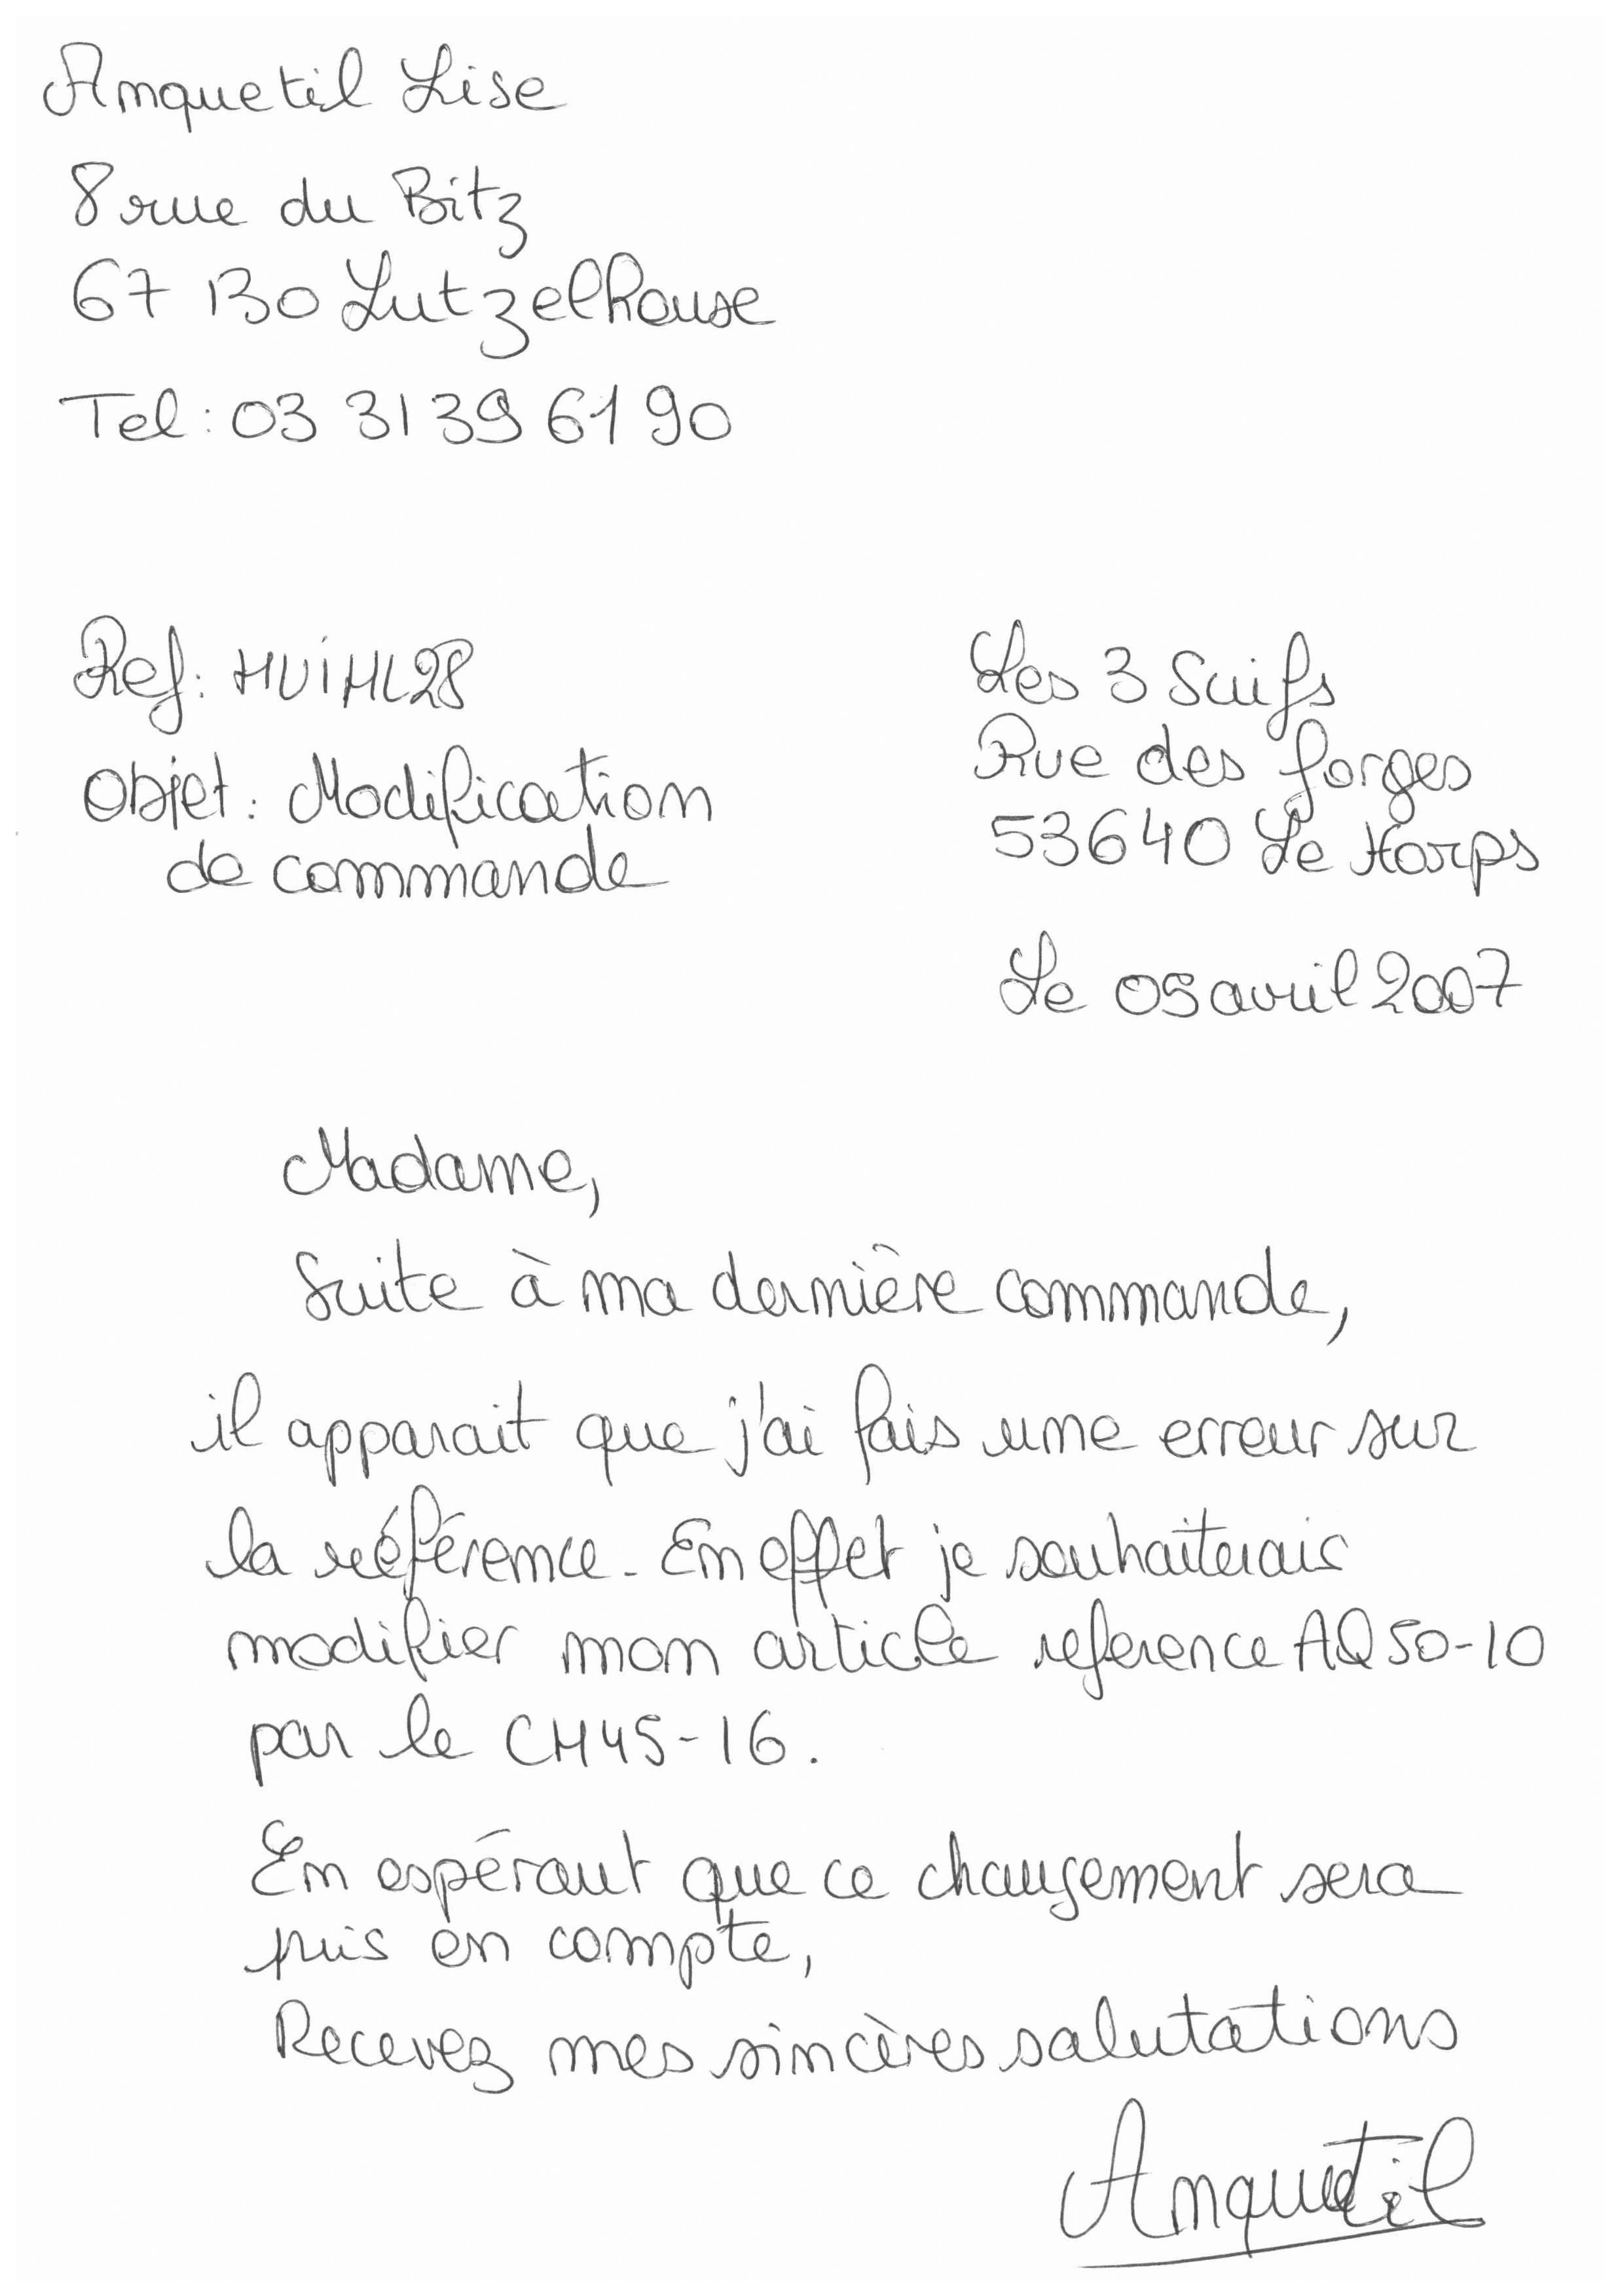 Anquetil Lise
8 rue du Bitz
67 130 Lutzelhouse
Tel : 03 31 39 61 90
Ref : HUIHL28
Objet : Modification
de commande
Les 3 Suifs
Rue des forges
53640 Le Horps
Le 05 avril 2007
Madame,
Suite à ma dernière commande,
il apparait que j'ai fais une erreur sur
la référence. En effet je souhaiterais
modifier mon article reference AQ50-10
par le CH45-16.
En espérant que ce changement sera
pris en compte,
Recevez mes sincères salutations
Anquetil